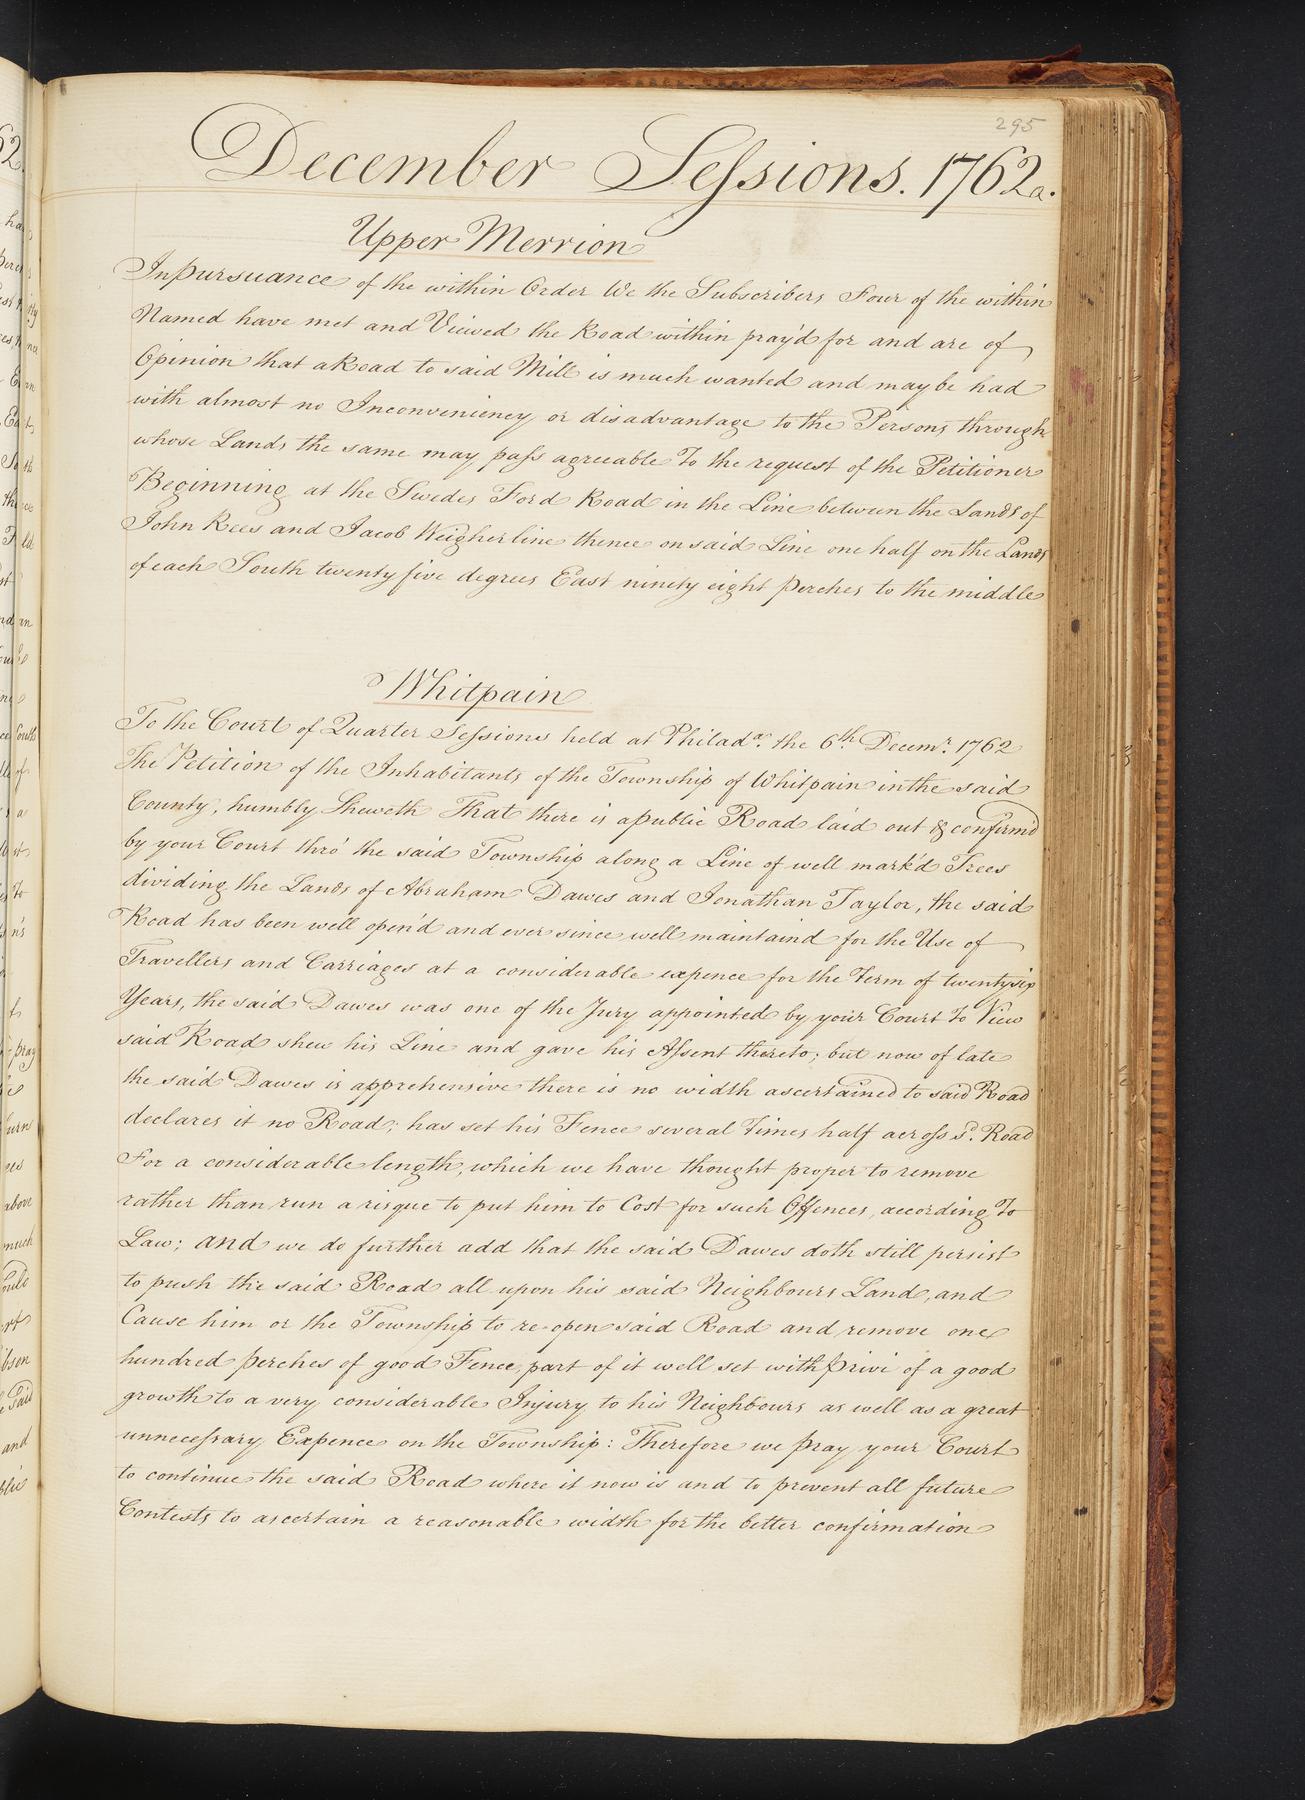 295
December Sessions. 1762a.
Upper Merrion
In pursuance of the within Order We the Subscribers Four of the within
Named have met and Viewed the Road within pray'd for and are of
Opinion that a Road to said Mill is much wanted and may be had
with almost no Inconveniency or disadvantage to the Persons through
whose Lands the same may pass agreeable To the request of the Petitioner
Beginning at the Swedes Ford Road in the Line between the Lands of
John Rees and Jacob Weigherline thence on said Line one half on the Lands
of each South twenty five degrees East ninety eight perches to the middle
Whitpain
To the Court of Quarter Sessions held at Philada. the 6th. Decemr. 1762
The Petition of the Inhabitants of the Township of Whitpain in the said
County, humbly Sheweth That there is a public Road laid out & confirm'd
by your Court thro' the said Township along a Line of well mark'd Trees
dividing the Lands of Abraham Dawes and Jonathan Taylor, the said
Road has been well open'd and ever since well maintaind for the Use of
Travellers and Carriages at a considerable expence for the Term of twenty six
Years, the said Dawes was one of the Jury appointed by your Court To View
said Road shew his Line and gave his Assent thereto; but now of late
the said Dawes is apprehensive there is no width ascertained to said Road
declares it no Road; has set his Fence several Times half across sd. Road
For a considerable length, which we have thought proper to remove
rather than run a risque to put him to Cost for such Offences, according To
Law; and we do further add that the said Dawes doth still persist
to push the said Road all upon his said Neighbours Land, and
Cause him or the Township to re-open said Road and remove one
hundred perches of good Fence, part of it well set with privi of a good
growth to a very considerable Injury to his Neighbours as well as a great
unnecessary Expence on the Township: Therefore we pray your Court
to continue the said Road where it now is and to prevent all future
Contests to ascertain a reasonable width for the better confirmation